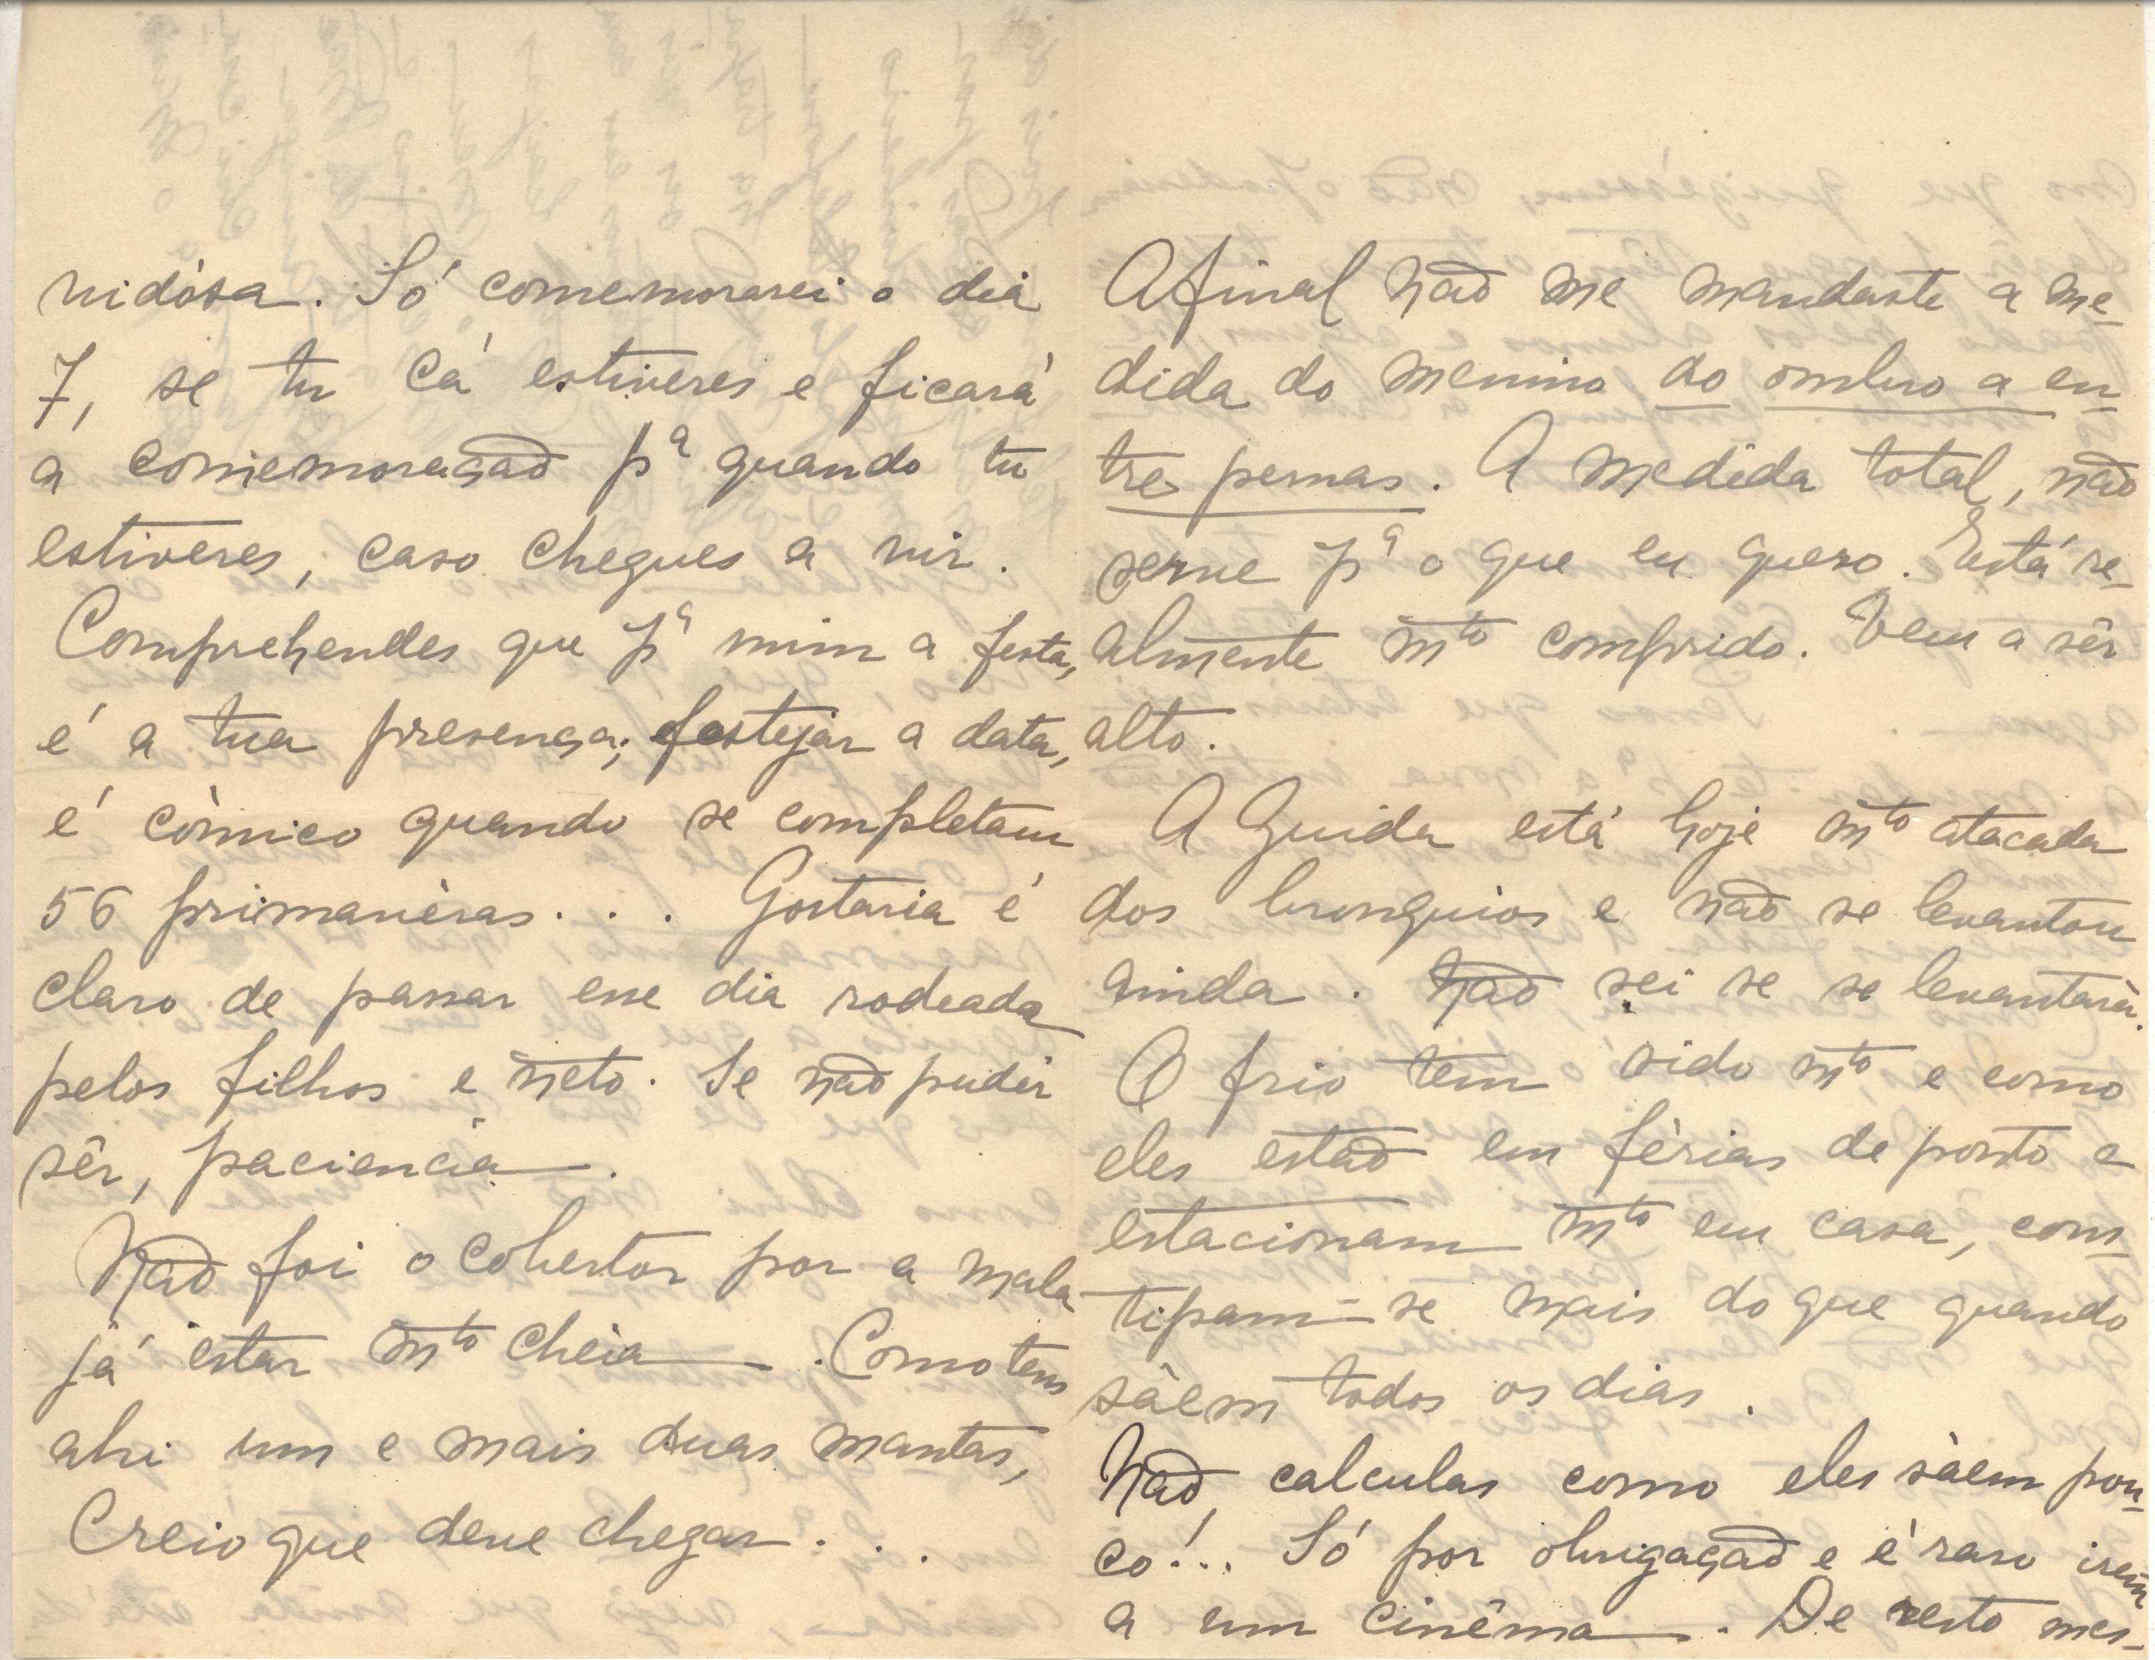 vidósa. Só comemorarei o dia
7, se tu cá estiveres e ficará
a comemoração pª quando tu
estiveres, caso chegues a vir.
Comprehendes que pª mim a festa,
é a tua presença; festejar a data,
é còmico quando se completam
56 primavèras... Gostaria é
claro de passar esse dia rodeada
pelos filhos e neto. Se não pudér
sêr, paciencia.
Não foi o cobertor por a mala
já estar mto chèia. Como tens
ahi um e mais duas mantas,
Creio que deve chegar...
Afinal não me mandaste a me-
dida do menino do ombro a en-
tre pernas. A medida total, não
serve pª o que eu quero. Está re-
almente mto comprido. Vem a sêr
alto.
A Guida está hoje mto atacada
dos bronquios e não se levantou
ainda. Não sei se se levantará.
O frio tem sido mto e como
eles estão em férias de ponto e
estacionam mto em casa, cons-
tipam-se mais do que quando
sàem todos os dias.
Não calculas como eles sàem pou-
co!... Só por obrigação e é raro irem
a um cinêma. De resto mes-